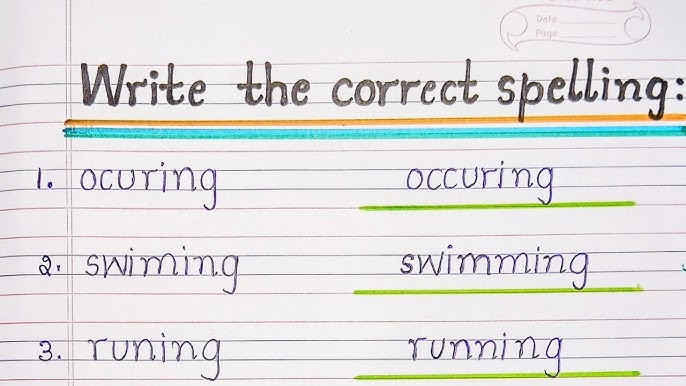 Date
Page
Write the correct spelling:
1. ocuring occuring
2. swiming swimming
3. runing running